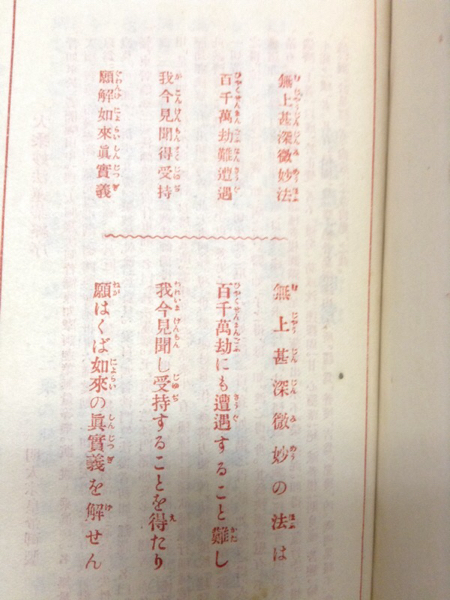 無上甚深微妙法
百千萬劫難遭遇
我今見聞得受持
願解如來眞實義
無上甚深微妙の法は
百千萬劫にも遭遇すること難し
我今見聞し受持することを得たり
願はくば如來の眞實義を解せん